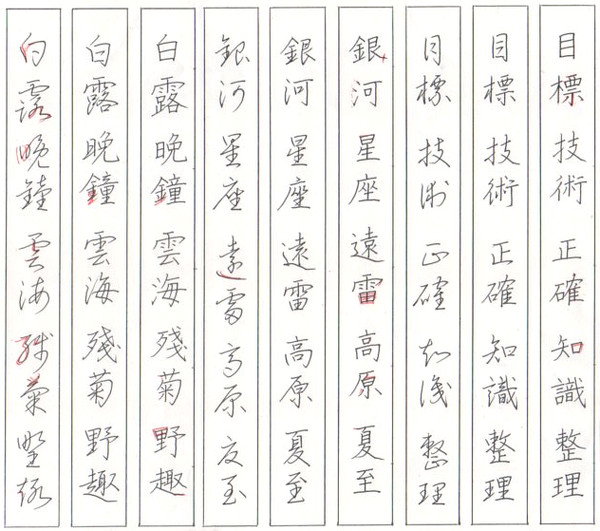 目標技術正確知識整理
目標技術正確知識整理
目標技術正確知識整理
銀河星座遠雷高原夏至
銀河星座遠雷高原夏至
銀河星座遠雷高原夏至
白露晩鐘雲海残菊野趣
白露晩鐘雲海残菊野趣
白露晩鐘雲海残菊野趣